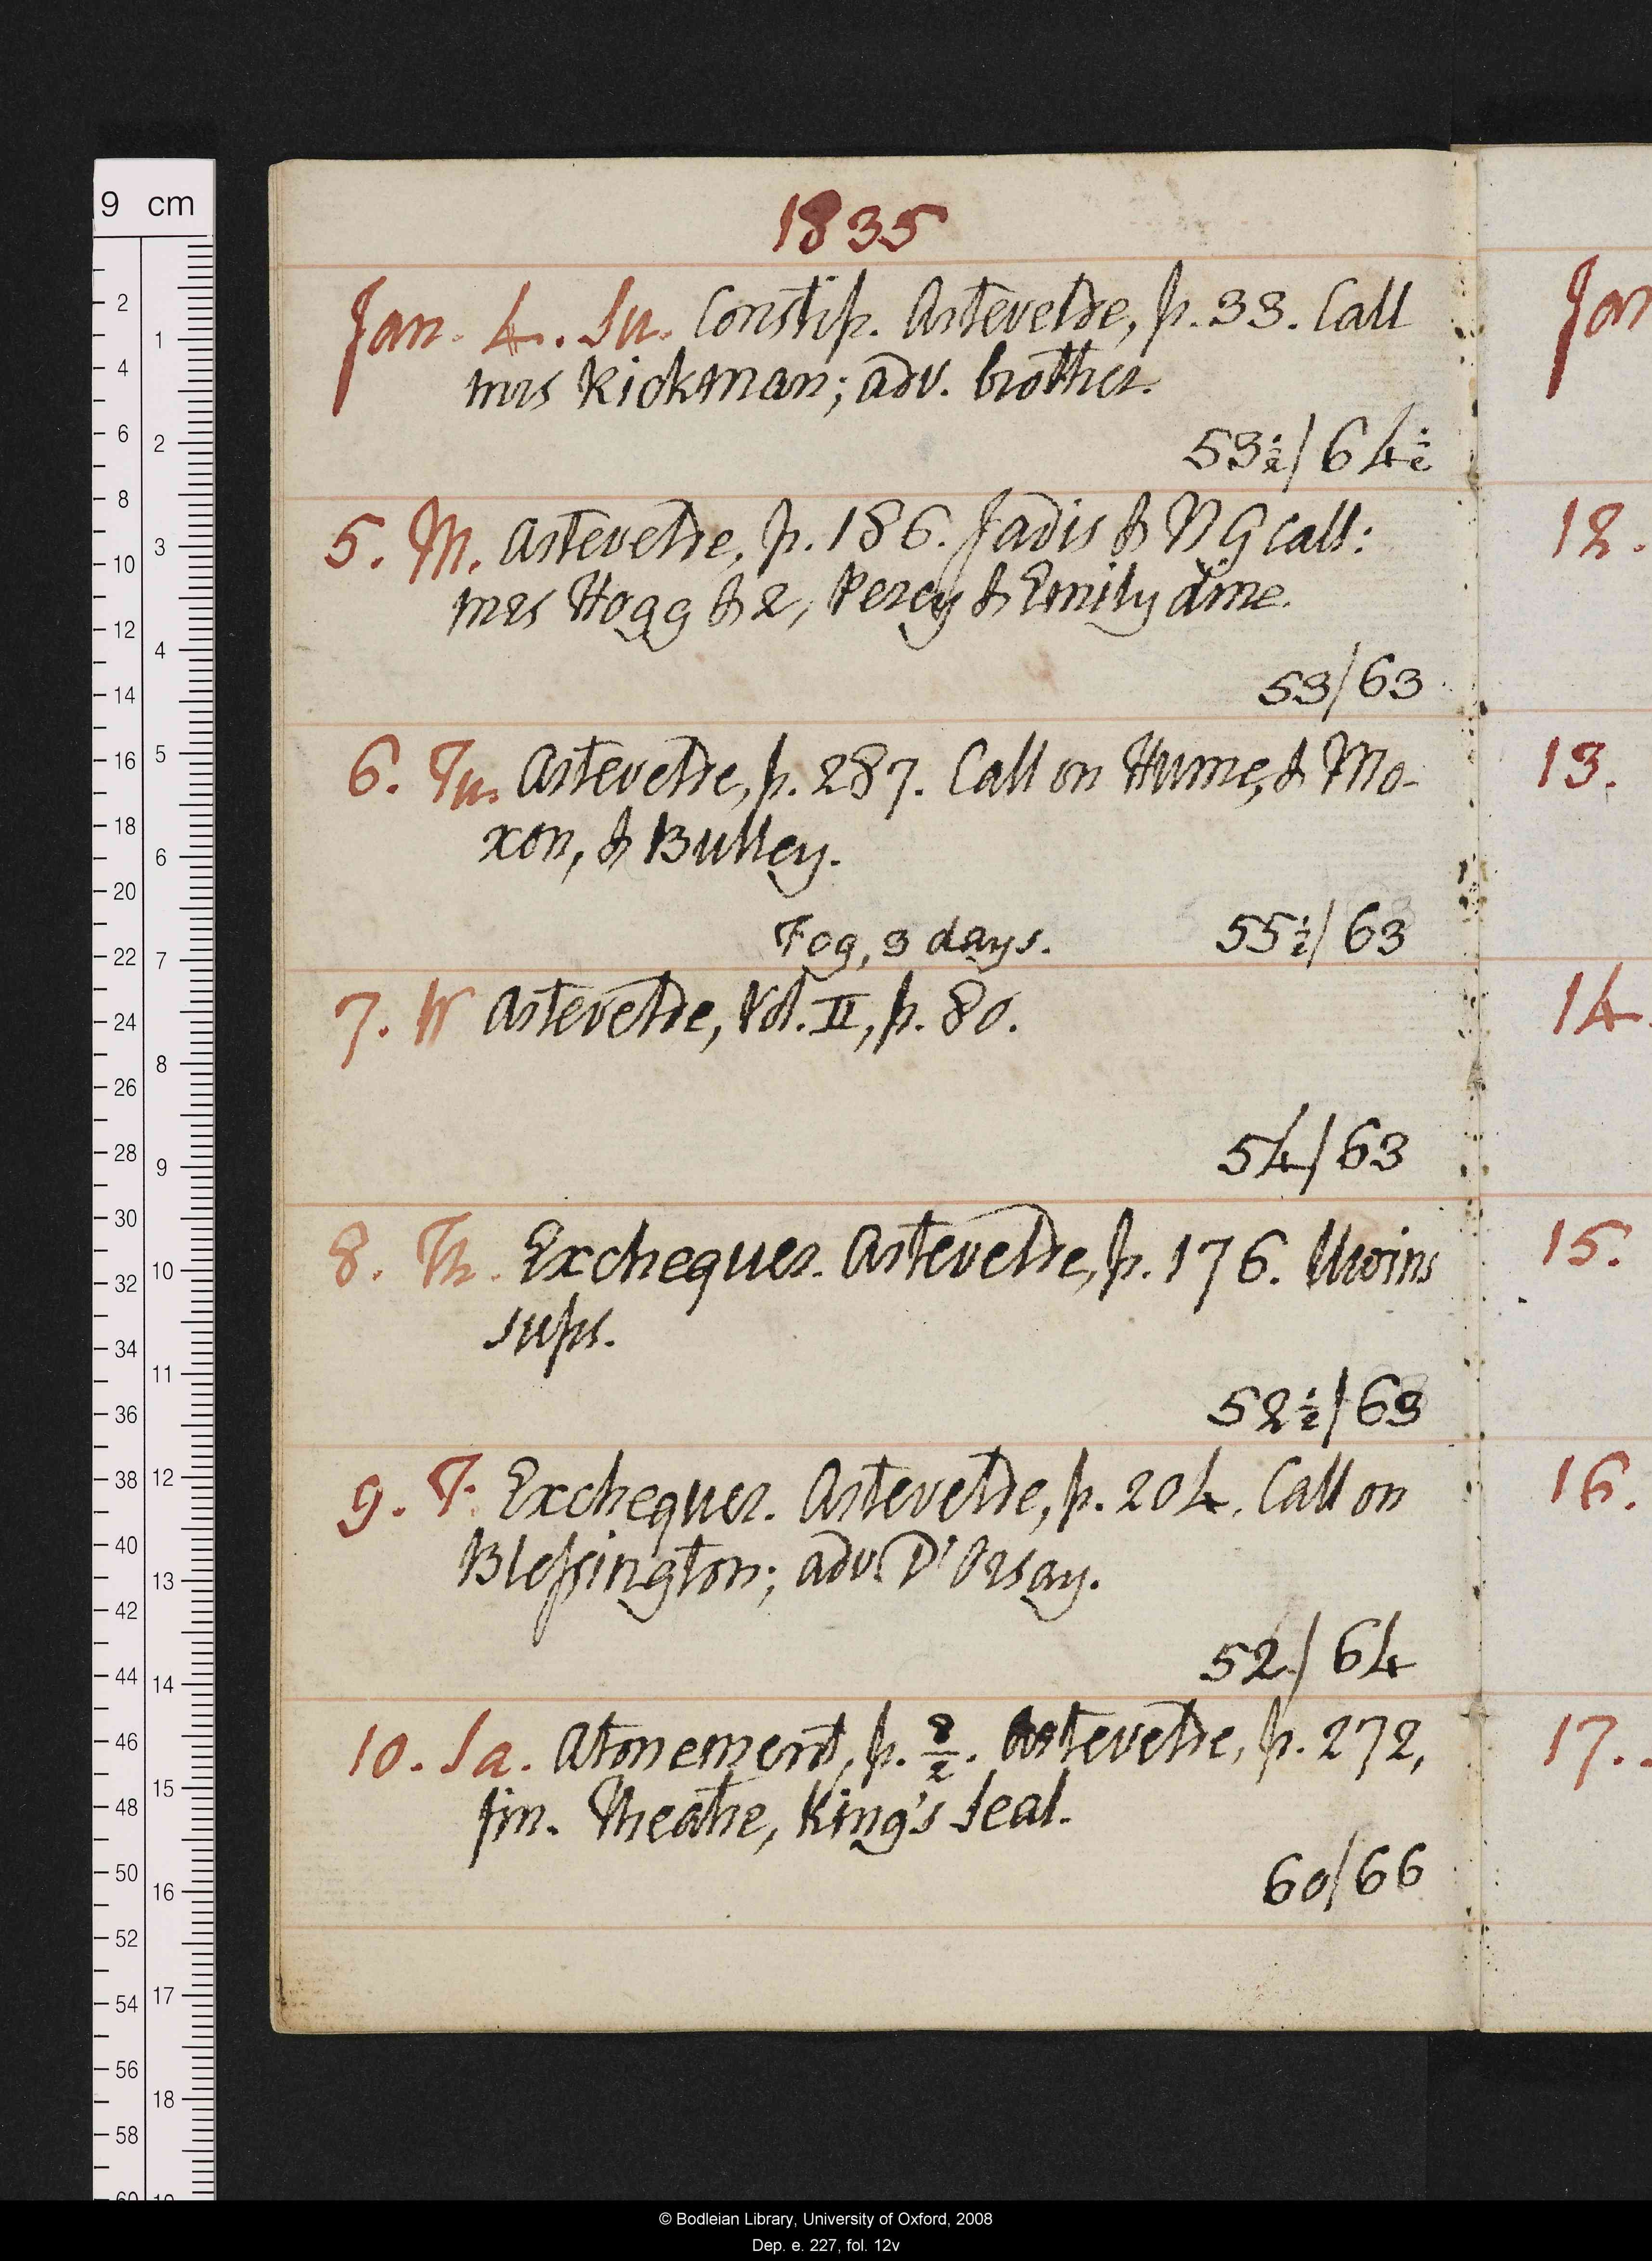 1835
Jan. 4. Su. Constip. Artevelde, p. 33. Call
mrs Rickman; adv. brother.
53½/64½
5. M. Artevelde, p. 186. Jadis & N G call:
mrs Hogg & 2, Percy & Emily dine.
53/63
6. Tu. Artevelde, p. 287. Call on Hume, & Mo-
xon, & Bulley.
Fog, 3 days. 55½/63
7. W Artevelde, Vol. II, p. 80.
54/63
8. Th. Exchequer. Artevelde, p. 176. Uwins
sups.
52½/63
9. F. Exchequer. Artevelde, p. 204. Call on
Blessington; adv. D'Orsay.
52/64
10. Sa. Atonement, p. 8/2. Artevelde, p. 272,
fin. Theatre, King's Seal.
60/66
Jan
12.
13.
14.
15.
16.
17.
9 cm
2 4 6 8 10 12 14 16 18 20 22 24 26 28 30 32 34 36 38 40 42 44 46 48 50 52 54 56 58 60
1 2 3 4 5 6 7 8 9 10 11 12 13 14 15 16 17 18 19
© Bodleian Library, University of Oxford, 2008
Dep. e. 227, fol. 12v